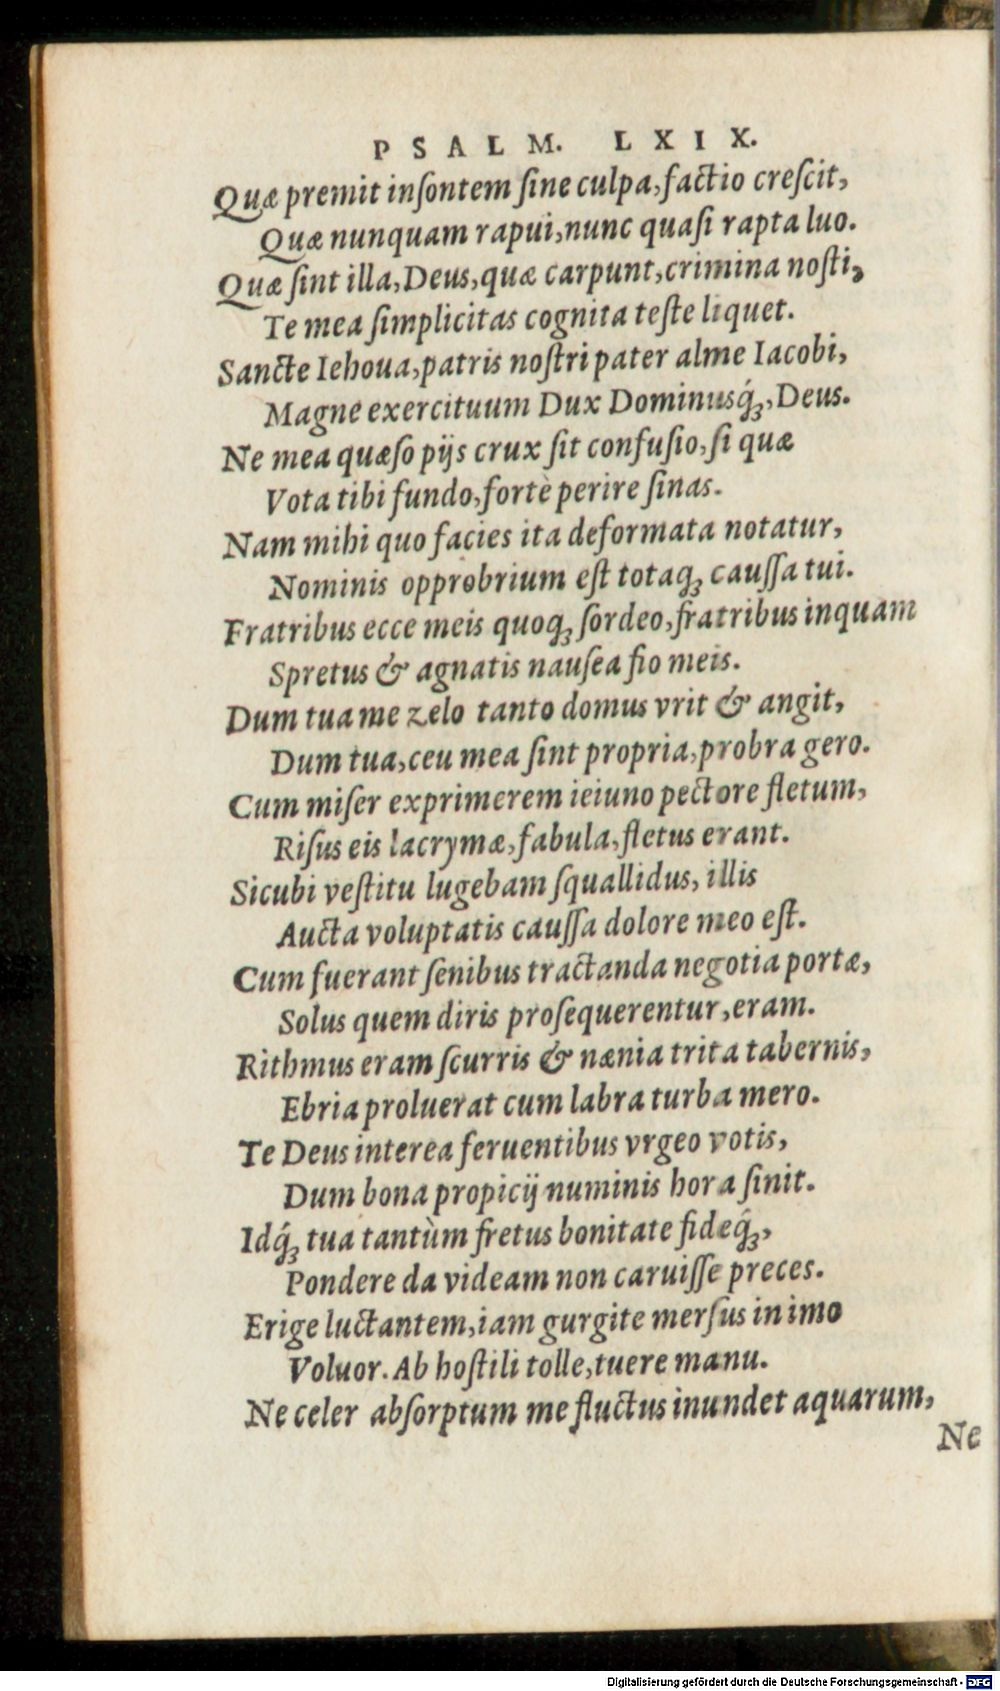 PSALM. LXIX.
Quæ premit inſontem ſine culpa, factio creſcit,
Quæ nunquam rapui, nunc quaſi rapta luo.
Quæ ſint illa, Deus, quæ carpunt, crimina noſti,
Te mea ſimplicitas cognita teſte liquet.
Sancte Iehoua, patris noſtri pater alme Iacobi,
Magne exercituum Dux Dominusq́ꝫ, Deus.
Ne mea quæſo pijs crux ſit confuſio, ſi quæ
Vota tibi fundo, fortè perire ſinas.
Nam mihi quo facies ita deformata notatur,
Nominis opprobrium eſt totaqꝫ cauſſa tui.
Fratribus ecce meis quoqꝫ ſordeo, fratribus inquam
Spretus & agnatis nauſea fio meis.
Dum tua me zelo tanto domus vrit & angit,
Dum tua, ceu mea ſint propria, probra gero.
Cum miſer exprimerem ieiuno pectore fletum,
Riſus eis lacrymæ, fabula, fletus erant.
Sicubi veſtitu lugebam ſquallidus, illis
Aucta voluptatis cauſſa dolore meo eſt.
Cum fuerant ſenibus tractanda negotia portæ,
Solus quem diris proſequerentur, eram.
Rithmus eram ſcurris & nænia trita tabernis,
Ebria proluerat cum labra turba mero.
Te Deus interea feruentibus vrgeo votis,
Dum bona propicij numinis hora ſinit.
Idq́ꝫ tua tantùm fretus bonitate fideq́ꝫ,
Pondere da videam non caruiſſe preces.
Erige luctantem, iam gurgite merſus in imo
Voluor. Ab hoſtili tolle, tuere manu.
Ne celer abſorptum me fluctus inundet aquarum,
Ne
Digitalisierung gefördert durch die Deutsche Forschungsgemeinschaft - DFG